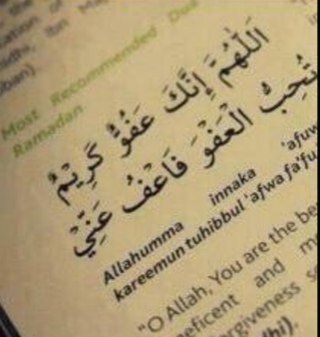 ation of
idhi, Ibn
ban).
Most Recommended Dua
Ramadan
اَللّٰهُمَّ إِنَّكَ عَفُوٌّ كَرِيْمٌ
تُحِبُّ الْعَفْوَ فَاعْفُ عَنِّيْ
Allahumma innaka 'afuw
kareemun tuhibbul 'afwa fa'fu
"O Allah, You are the be
eficent and m
rgiveness so
dhi).